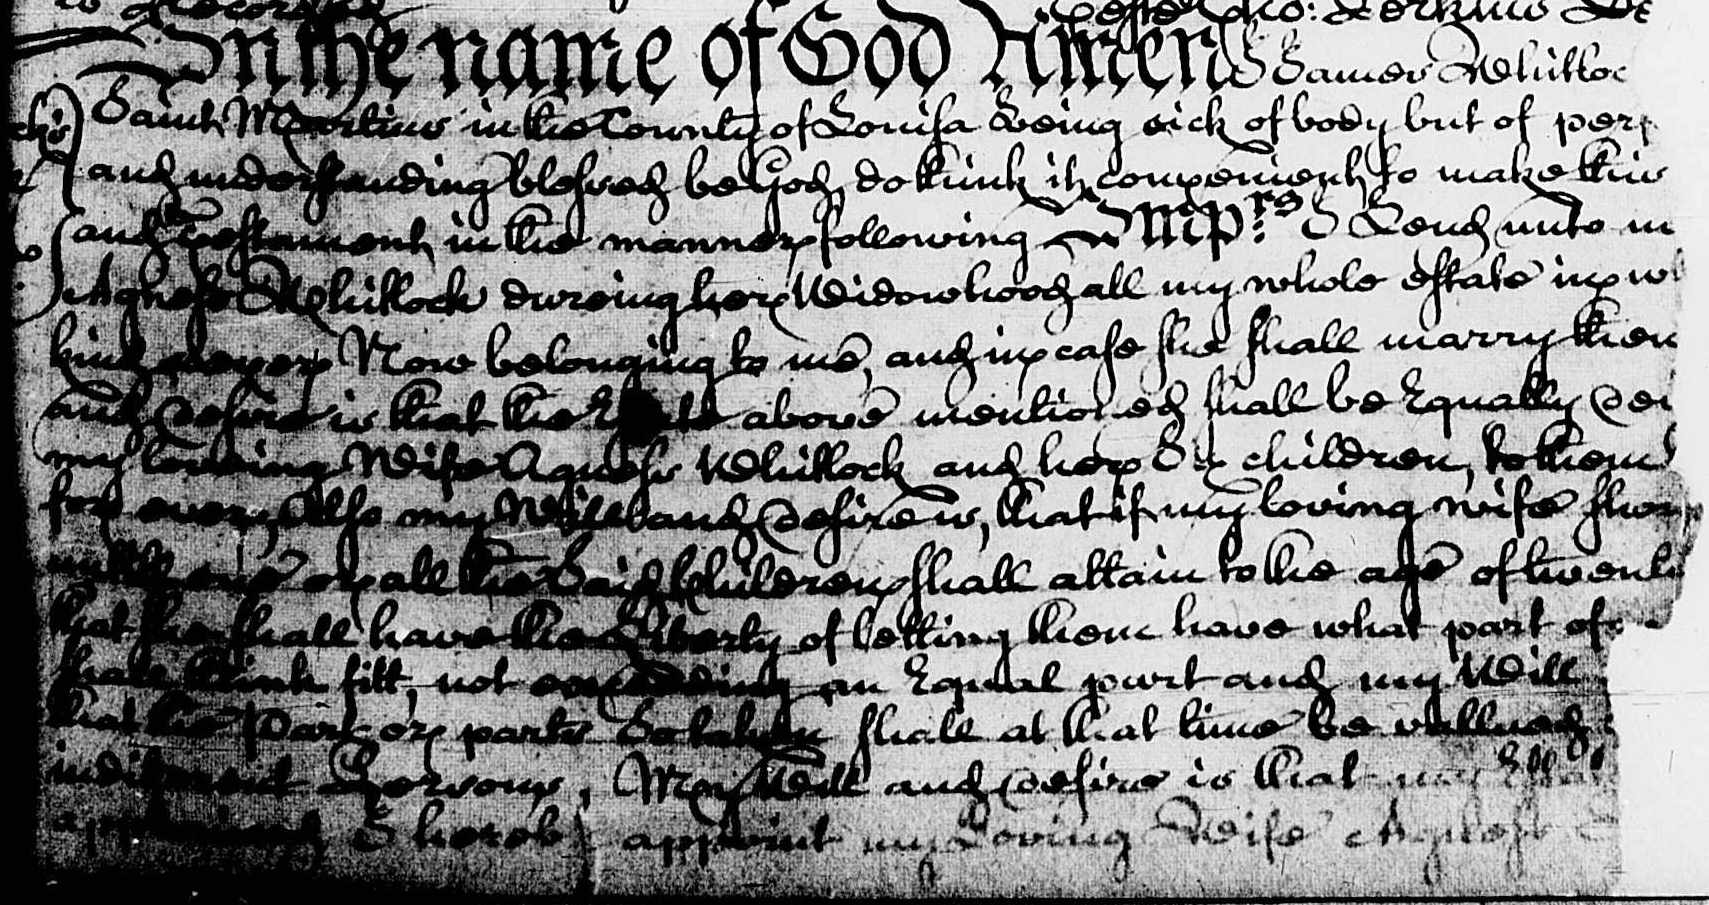 to Record
Teste Tho: Perkins
In the name of God Amen I James Whitloc
Saint Martins in the County of Louisa being sick of body but of perf
and understanding blessed be God, do think it convenient to make this
and Testament in the manner following Imprs: I Lend unto m
Agness Whitlock dureing her Widowhood all my whole estate in w
kind Now belonging to me, and in case she shall marry then
and desire is that the above mentioned shall be Equally de
my loveing Wife Agness Whitlock and her Six children, to them
for ever, Also my Will and desire is, that if my loving wife
or all the Said Children shall attain to the age of twent
that she shall have the Liberty of letting them have what part of
shall think fitt, not exceeding an Equal part and my Will
that the part or parts So taken shall at that time be vallued
indiferent persons, My Will and desire is that my
I hereby appoint my Loving Wife Agness